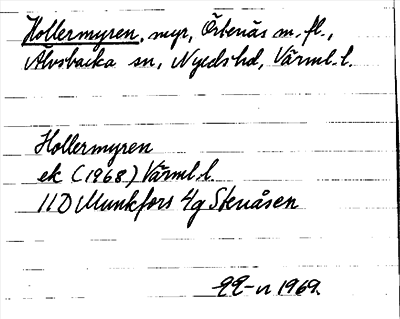 Hollermyren, myr, Örbenäs m.fl.,
Älvsbacka sn, Nyeds hd, Värml. l.
Hollermyren
ek (1968) Värml. l.
11D Munkfors 4g Stenåsen
1969